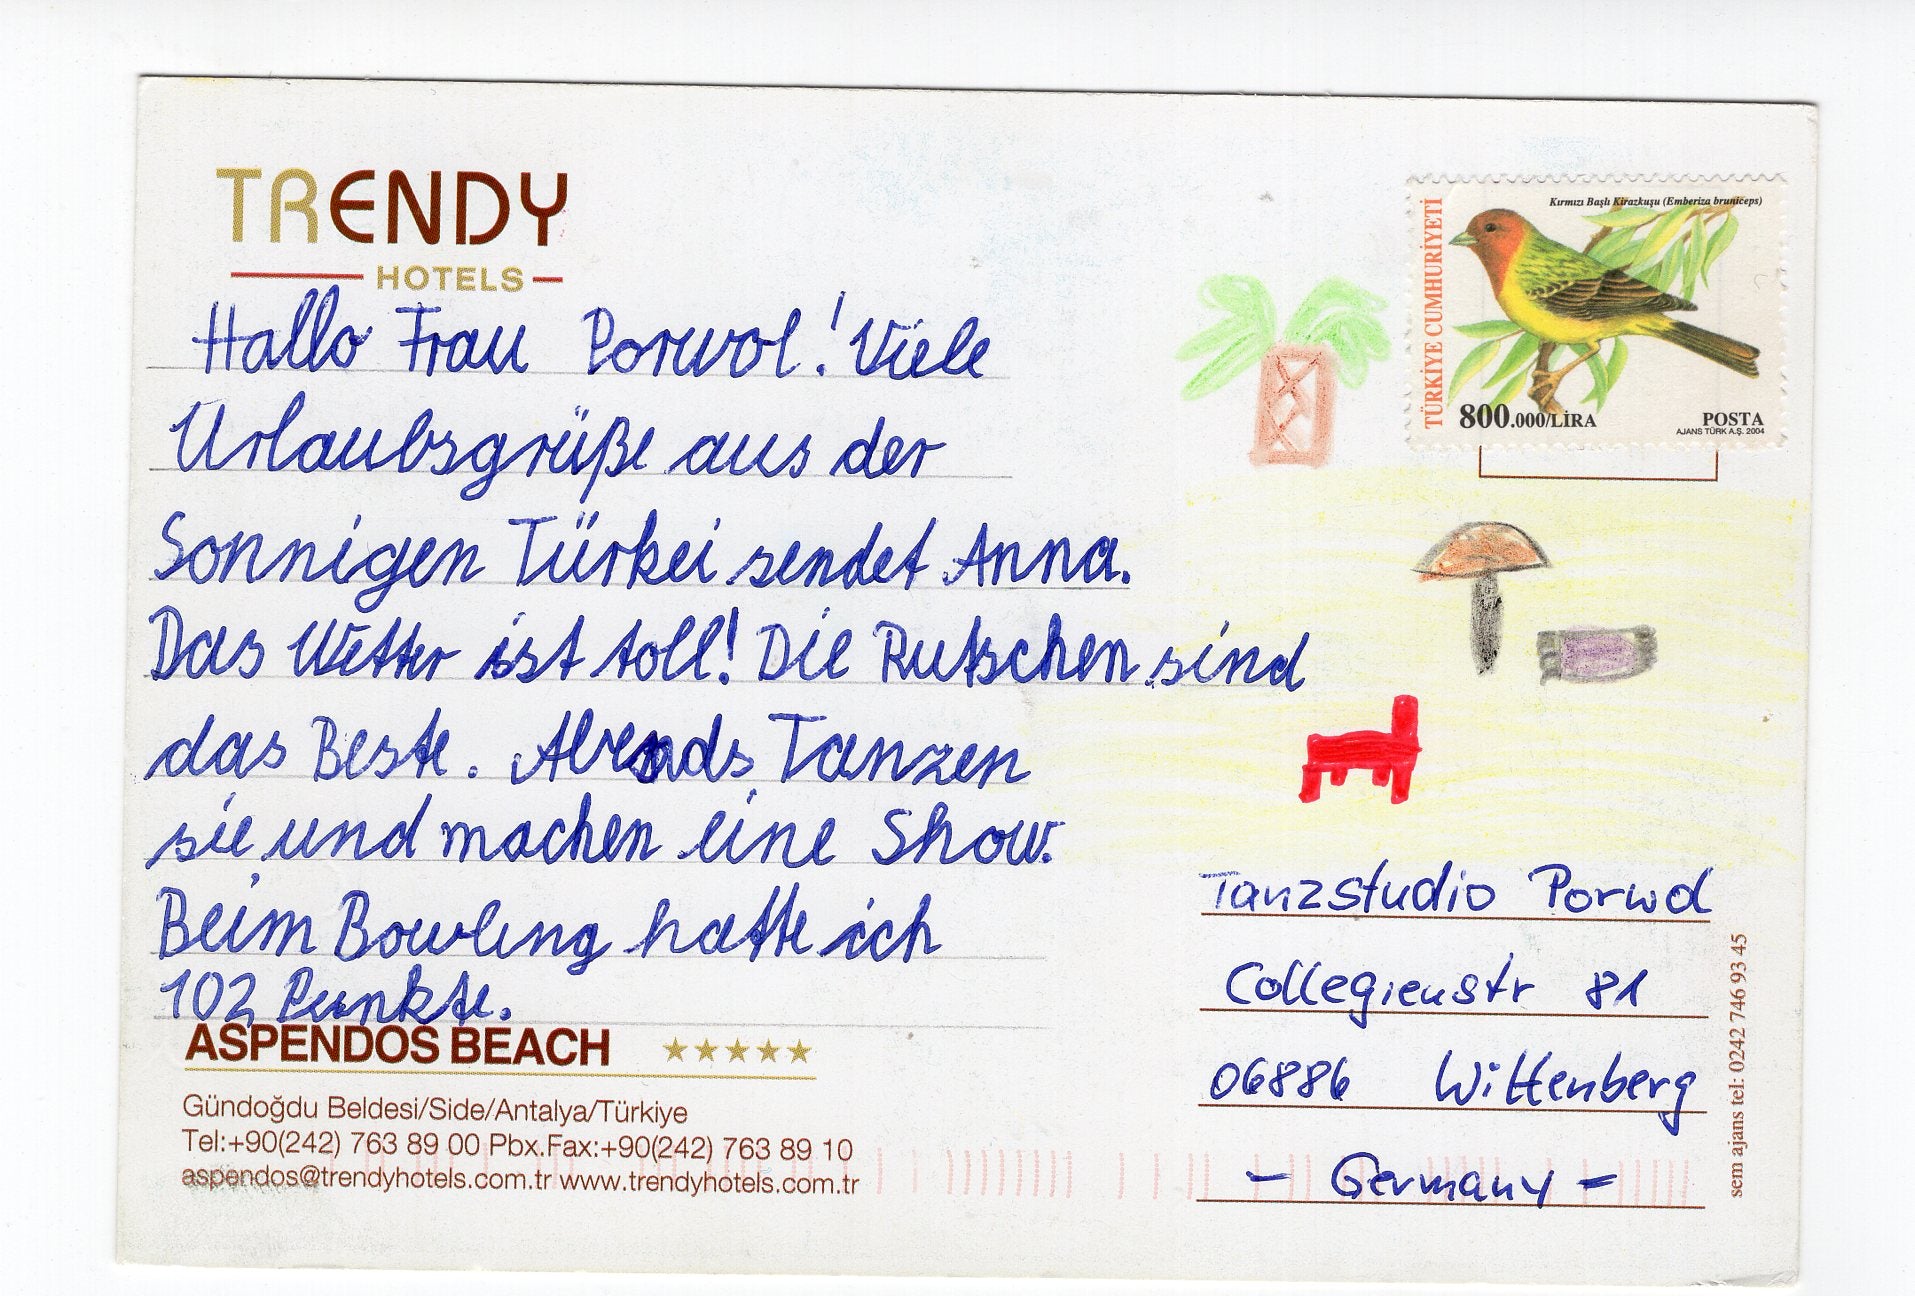 TRENDY
HOTELS
Hallo Frau Porwol! Viele
Urlaubsgrüße aus der
Sonnigen Türkei sendet Anna.
Das Wetter ist toll! Die Rutschen sind
das Beste. Abends Tanzen
sie und machen eine Show.
Beim Bowling hatte ich
102 Punkte.
ASPENDOS BEACH
Gündoğdu Beldesi/Side/Antalya/Türkiye
Tel:+90(242) 763 89 00 Pbx.Fax:+90(242) 763 89 10
aspendos@trendyhotels.com.tr www.trendyhotels.com.tr
Kırmızı Başlı Kirazkuşu (Emberiza bruniceps)
TÜRKİYE CUMHURİYETİ
800.000/LİRA
POSTA
AJANS TÜRK A.Ş. 2004
Tanzstudio Porwol
Collegienstr 81
06886 Wittenberg
- Germany -
sem ajans tel: 0242 746 93 45